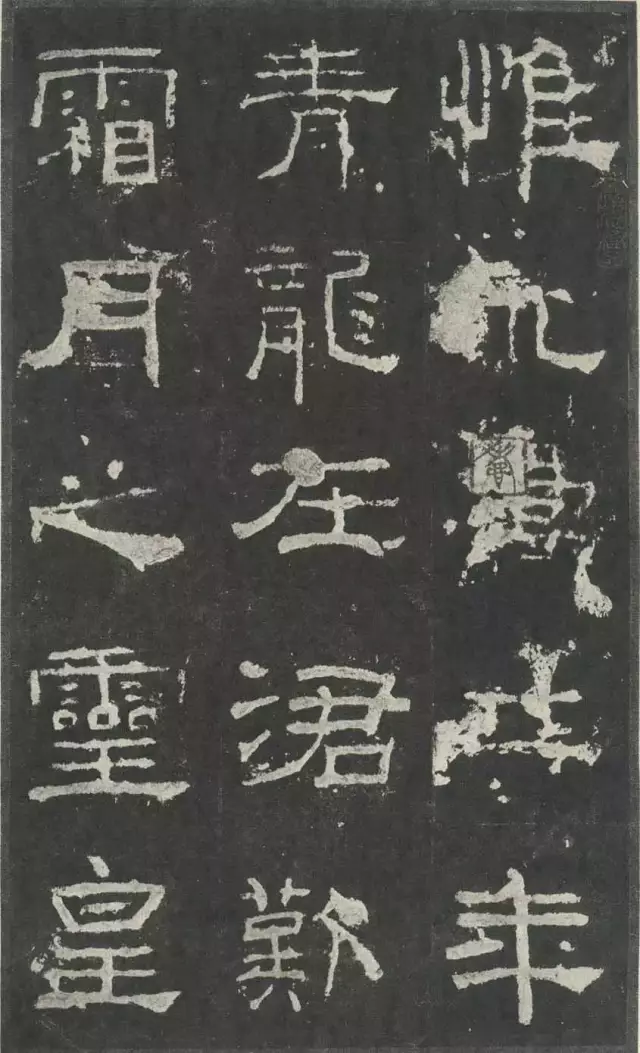 惟永壽二年
青龍在涒歎
霜月之靈皇